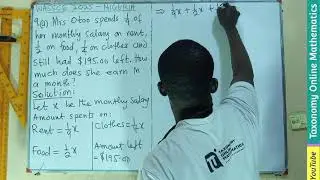 WASSCE 2025 - NIGERIA
Q(a) Mrs Otoo spends 1/4 of
her monthly Salary on rent,
1/2 on food, 1/6 on clothes and
still had $195.00 left. How
much does she earn in
a month?
Solution:
Let x be the monthly Salary
Amount spent on:
Rent = 1/4x
Clothes = 1/6x
Food = 1/2x
Amount left
= $195.00
⇒ 1/4x + 1/2x +
Taxonomy Online Mathematics
YouTube